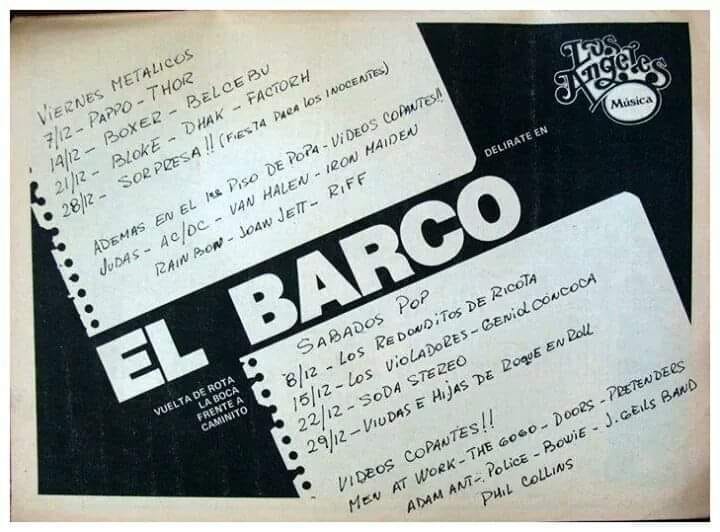 VIERNES METALICOS
7/12 - PAPPO - THOR
14/12 - BOXER - BELCEBU
21/12 - BLOKE - DHAK - FACTORH
28/12 - SORPRESA!! (FIESTA PARA LOS INOCENTES)
ADEMAS EN EL 1ER PISO DE POPA - VIDEOS COPANTES!!
JUDAS - AC/DC - VAN HALEN - IRON MAIDEN
RAINBON - JOAN JETT - RIFF
Los Angeles
Música
DELIRATE EN
EL BARCO
VUELTA DE ROTA
LA BOCA
FRENTE A
CAMINITO
SABADOS POP
8/12 - LOS REDONDITOS DE RICOTA
15/12 - LOS VIOLADORES - GENIOL CON COCA
22/12 - SODA STEREO
29/12 - VIUDAS E HIJAS DE ROQUE EN ROLL
VIDEOS COPANTES!!
MEN AT WORK - THE GOGO - DOORS - PRETENDERS
ADAM ANT - POLICE - BOWIE - J. GEILS BAND
PHIL COLLINS